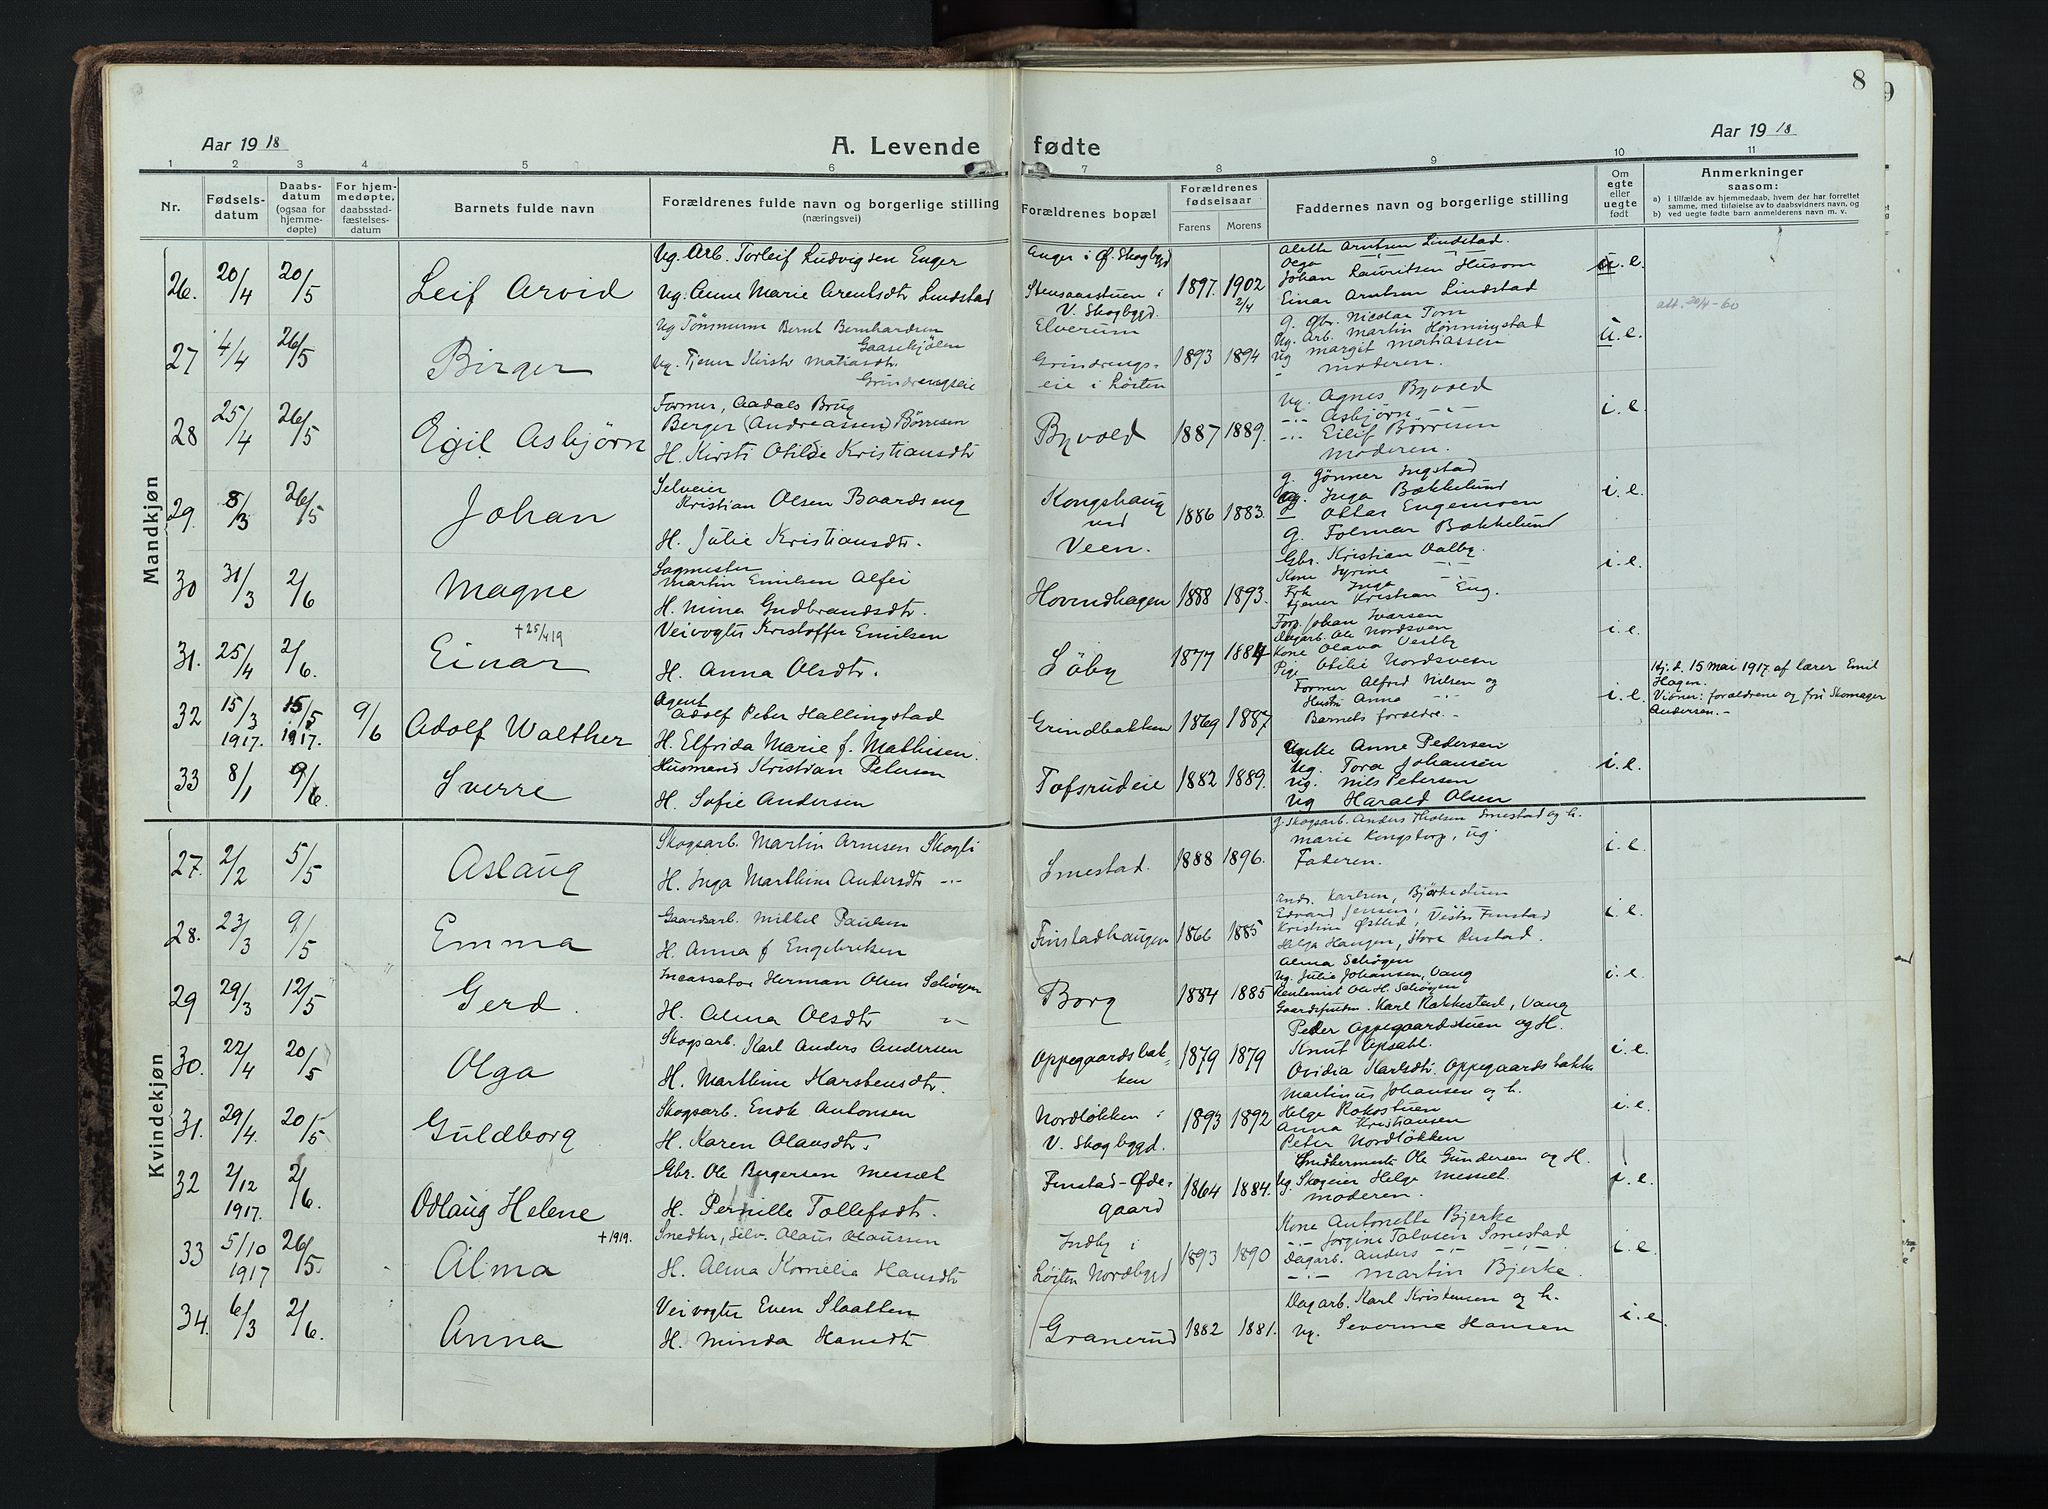 8
9
Aar 1918
A. Levende fødte
Aar 1918
1 2 3 4 5 6 7 8 9 10 11
Nr.
Fødsels-
datum
Daabs-
datum
(ogsaa for
hjemme-
døpte)
For hjem-
medøpte,
daabsstad-
fæstelses-
datum
Barnets fulde navn
Forældrenes fulde navn og borgerlige stilling
(næringsvei)
Forældrenes bopæl
Forældrenes
fødselsaar
Farens Morens
Faddernes navn og borgerlige stilling
Om
egte
eller
uegte
født
Anmerkninger
saasom:
a) i tilfælde av hjemmedaab, hvem der har forrettet
samme, med tilføielse av to daabsvidners navn, og
b) ved uegte fødte barn anmelderens navn m. v.
Mandkjøn
26. 20/4 20/5 Leif Arvid
Ug. Arb. Torleif Ludvigsen Enger
Ug. Anne Marie Arentsdtr Lindstad
Anger i Ø. Skogbygd
Stensaasstuen i
V. Skogbygd.
1897. 1902 2/4
Alette Arntsen Lindstad.
Olga
Johan Lauritsen Husom
Einar Arntsen Lindstad
u. e.
att. 20/4-60
27 4/4 26/5 Birger
Ug Tømmerm Bernt Bernhardsen
Gaasekjølen
Ug. Tjener Kirsti Matiasdtr.
Grindrengseie
Elverum
Grindrengs-
eie i Løiten
1893 1894
g. gbr. Nicolai Tom
Ug. Arb. Martin Hønningstad
Ug Margit Matiassen
Moderen.
u. e.
28 25/4 26/5 Egil Asbjørn
Former, Aadals Brug
Berger (Andreassen) Børresen
H. Kirsti Otilde Kristiansdtr
Byvold
1887 1889.
Ug. Agnes Byvold
-"- Asbjørn -"-
-"- Eilif Børresen
Moderen.
i. e.
29. 8/3 26/5 Johan
Selveier
Kristian Olsen Baardseng
H. Julie Kristiansdtr.
Kongshaug
ved
Veen.
1886 1883.
g. Gønner Ingstad
Ug. Inga Bækkelund
Ottar Engemoen
g. Folmar Bækkelund
i. e.
30 31/3 2/6 Magne
Sagmester
Martin Emilsen Alfei
H. Mina Gudbrandsdtr.
Hovindhagen
1888 1893.
Gbr. Kristian Dalby.
Kone Syrine -"-
Frk Inga
tjener Kristian Eng.
i. e.
31. 25/4 2/6. Einar
+ 25/4 19
Veivogter Kristoffer Emilsen
H. Anna Olsdtr.
Løby
1877 1884
Forp. Johan Ivarsen
Dagarb. Ole Nordsveen
Kone Olava Vestby
Pige Otilie Nordsveen
i. e.
32 15/3 1917. 15/5 1917. 9/6 Adolf Walther
Agent
Adolf Peter Hallingstad
H. Elfrida Marie f. Mathisen.
Grindbakken
1869 1887
Former Alfred Nilsen og
Hustru Anna -"-
Barnets forældre. -
i. e.
Hj. d. 15 mai 1917 af lærer Emil
Hagen.
Vidner: forældrene og frø Skomager
Andersen. -
33 8/1 9/6. Sverre
Husmand Kristian Petersen
H. Sofie Andersen
Tofsrudeie
1882 1889.
Enke Anne Pedersen
Ug. Tora Johansen
Ug. Nils Petersen
Ug Harald Olsen
i. e.
Kvindekjøn
27. 2/2 5/5 Aslaug
Skogsarb. Martin Arnesen Skogli
H. Inga Marthine Andersdtr -"-
Smestad.
1888 1896.
g. Skogsarb. Anders Tholsen Smestad og h.
Marie Kongstorp, ug
Faderen.
i. e.
28. 23/3 9/5 Emma
Gaardsarb. Mikkel Paulsen
H. Anna f Engebretsen
Finstadhaugen
1866 1885
Ands. Karlsen, Bjørkestuen
Edvard Jensen, Vestre Finstad
Kristine Østlid,
Helga Haugen, Store Rustad.
i. e.
29 29/3 12/5 Gerd.
Incassator Herman Olsen Schøyen
H. Alma Olsdtr -"-
Borg
1884 1885
Alma Schøyen
Ug. Julie Johansen, Vang
Rentenist Ole H. Schøyen
Karl Rokkestad, Vang
i. e.
30. 22/4 20/5 Olga
Skogsarb. Karl Anders Andersen
H. Marthine Karstensdtr.
Oppegaardsbak-
ken
1879 1879
Peder Oppegaardstuen og H.
Knut Opsahl.
Ovidia Karlsdtr. Oppegaardsbakken
i. e.
31. 29/4. 20/5 Guldborg
Skogsarb. Enok Antonsen
H. Karen Olausdtr.
Nordløkken i
V. Skogbygd.
1893 1892
Martinus Johansen og h.
Helge Rokostuen
Anna Kristiansen
Peter Nordløkken
i. e.
32 2/12 1917. 2/6. Odlaug Helene
Gbr. Ole Birgersen Messelt
H. Pernille Tollefsdtr.
Finstad-Øde-
gaard
1864 1884.
Smedkermester Ole Gundersen og H.
Ug. Skogeier Helge Messelt.
Moderen.
i. e.
33 5/10 1917 26/5. Alma
+ 1919.
Snedker, Selv. Olaus Olaussen
H. Alma Kornelia Hansdtr
Indby i
Løiten Nordbygd
1893 1890
Kone Antonette Bjerke
-"- Jorgine Talvsen Smestad
Dagarb. Anders -"- -"-
-"- Martin Bjerke.
i. e.
34. 6/3 2/6. Anna
Veivogter Even Slaatten
H. Minda Hansdtr
Granerud
1882 1881.
Dagarb. Karl Kristensen og h.
Ug. Severine Hansen
i. e.